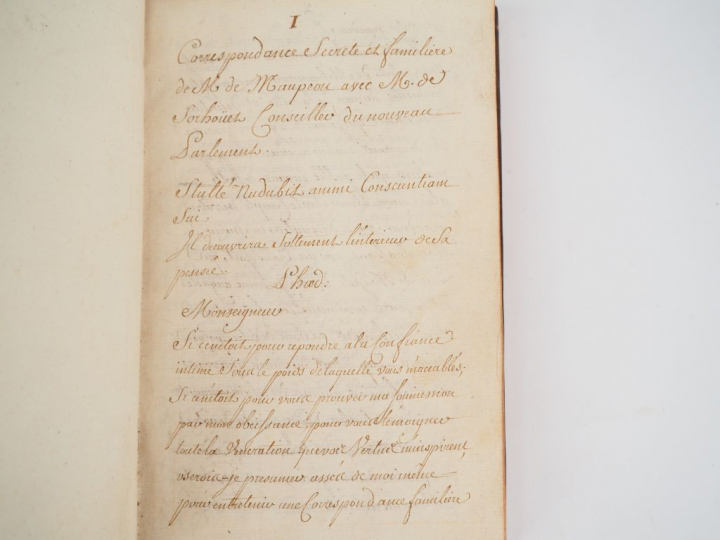 I
Correspondance Secrete et familière
de M de Maupeou avec M. de
Sorhoüet Conseiller du nouveau
Parlement.
Stulté Nudabit animi Conscientiam
Sui
Il decouvrira Sottement l'interieur de Sa
pensée
Phæd:
Monseigneur
Si ce n'etoit pour repondre a la Confiance
intime Sous le poids de laquelle vous m'accablés;
Si ce n'etoit pour vous prouver ma Soumission
par mon obeissance; pour vous temoigner
toute la Veneration que vos Vertus m'inspirent,
oserois-je presumer assés de moi même
pour entretenir une Correspondance familière